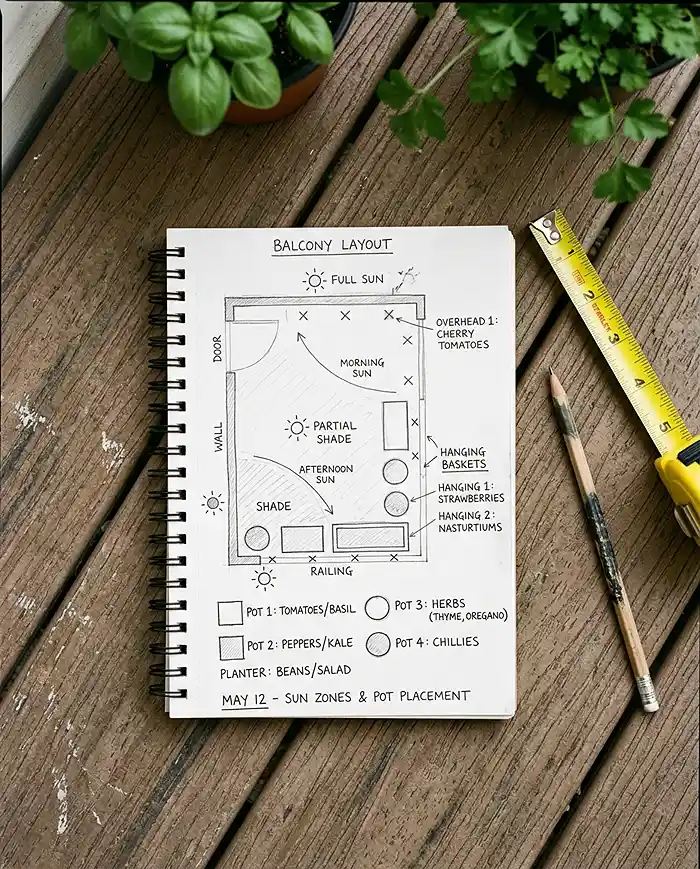 BALCONY LAYOUT
FULL SUN
OVERHEAD 1:
CHERRY
TOMATOES
DOOR
MORNING
SUN
WALL
PARTIAL
SHADE
AFTERNOON
SUN
HANGING
BASKETS
SHADE
HANGING 1:
STRAWBERRIES
HANGING 2:
NASTURTIUMS
RAILING
POT 1: TOMATOES/BASIL
POT 3: HERBS
(THYME, OREGANO)
POT 2: PEPPERS/KALE
POT 4: CHILLIES
PLANTER: BEANS/SALAD
MAY 12 – SUN ZONES & POT PLACEMENT
1
2
3
4
5